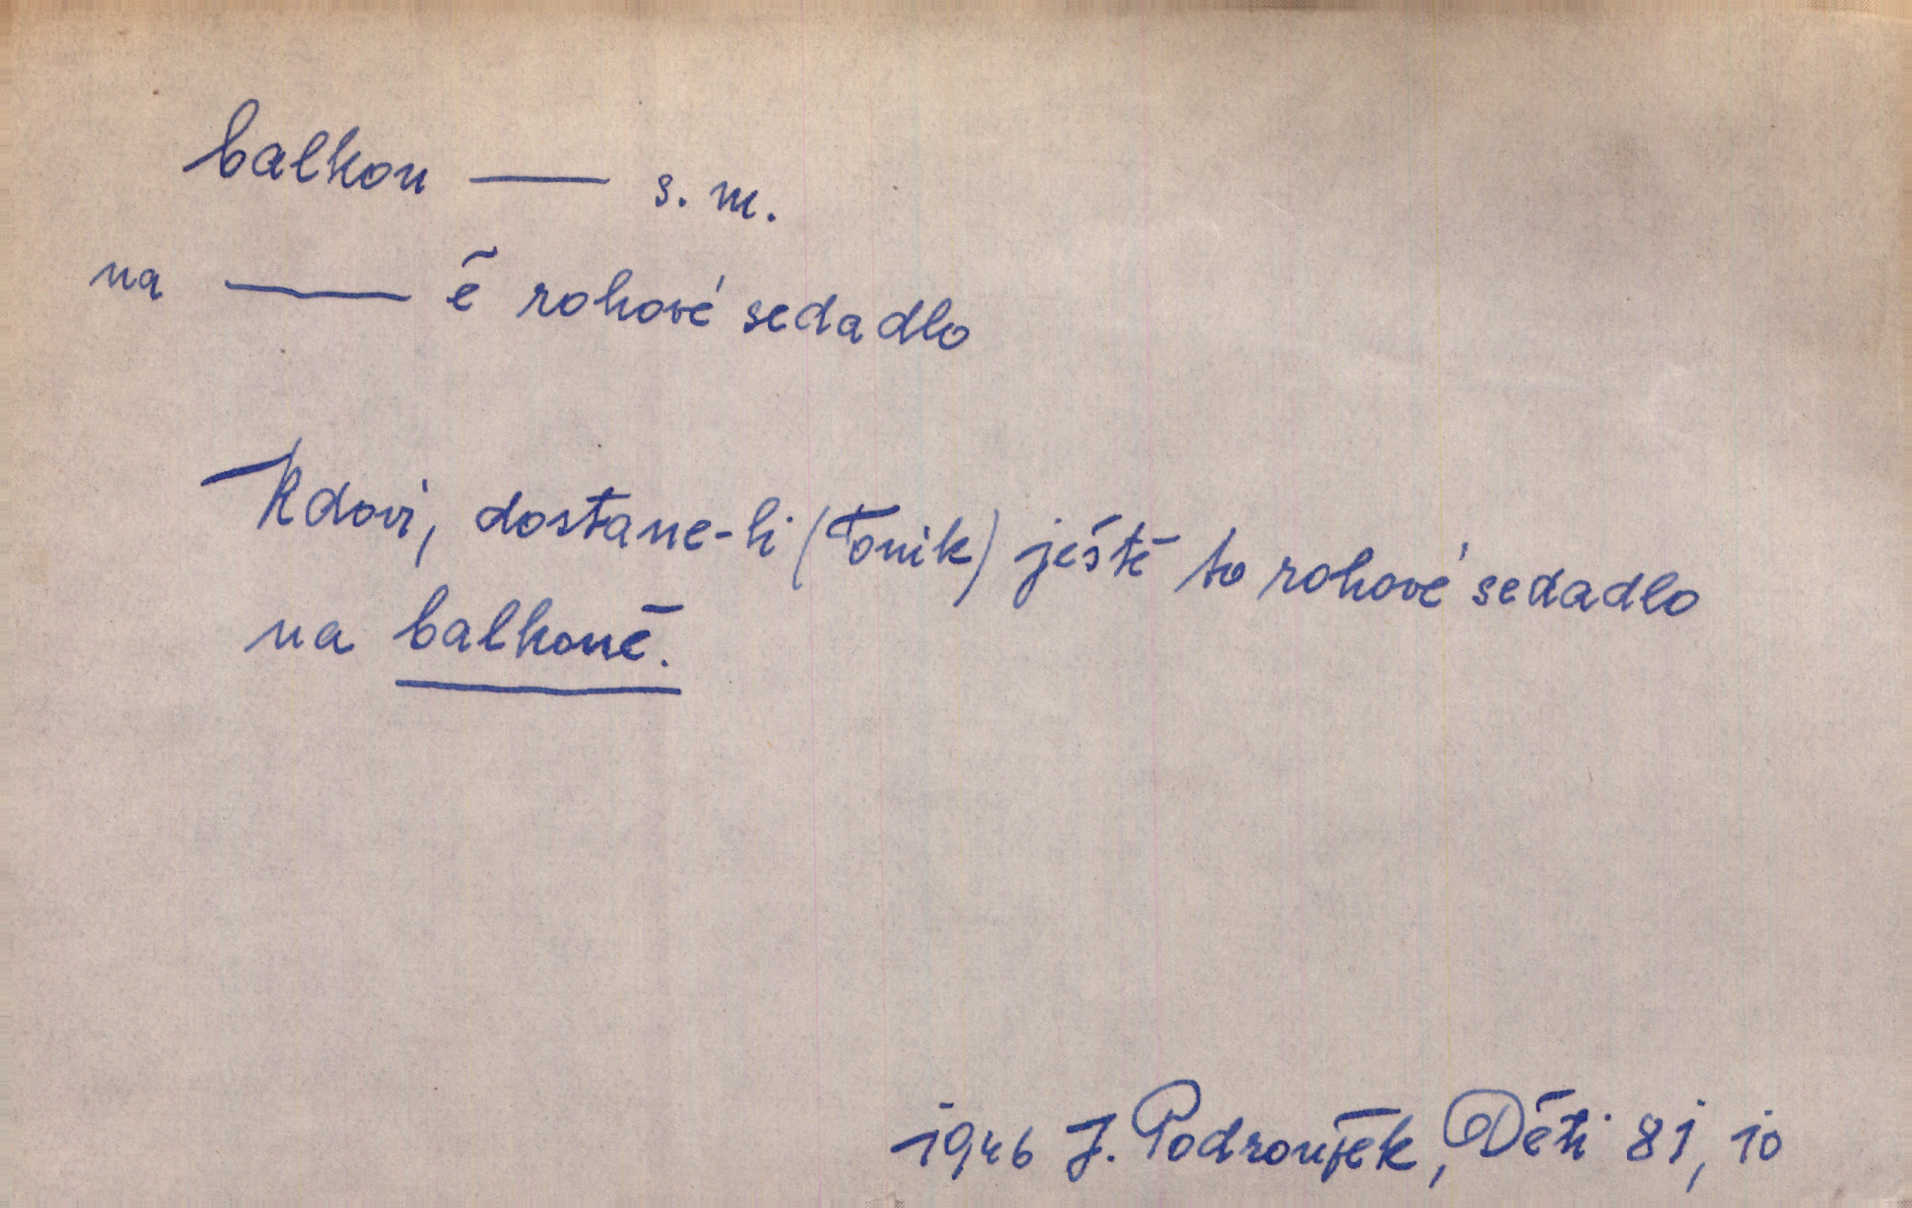 balkon — s. m.
na — ě rohové sedadlo
Kdoví, dostane-li (Toník) ještě to rohové sedadlo
na balkoně.
1946 J. Podroužek, Děti 81, 10